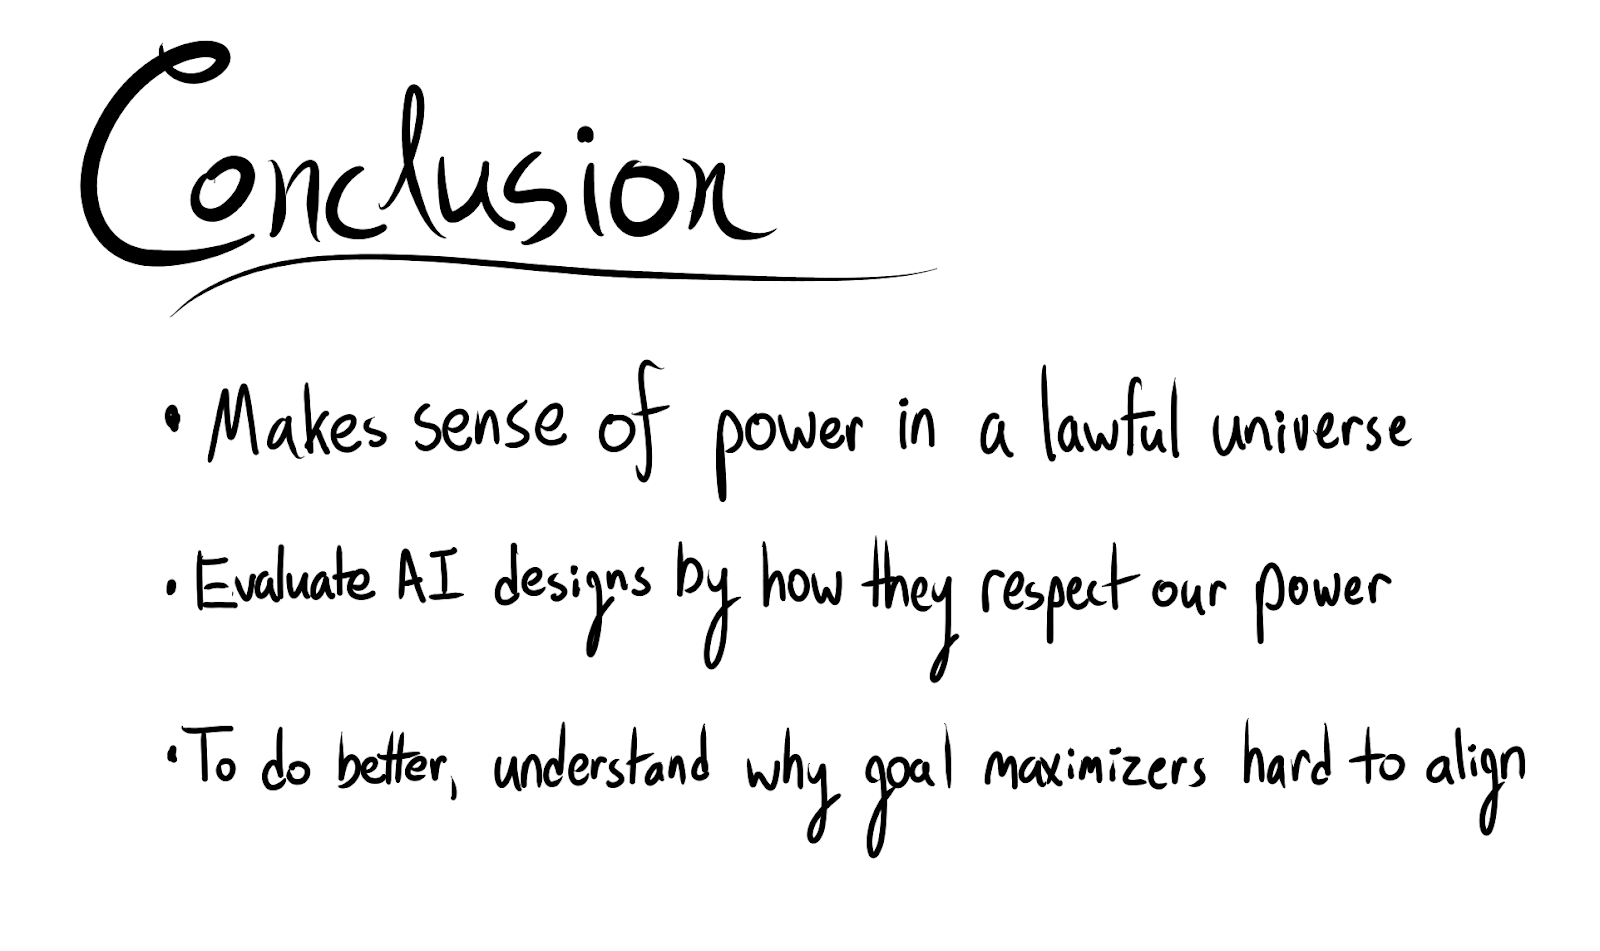 Conclusion
• Makes sense of power in a lawful universe
• Evaluate AI designs by how they respect our power
• To do better, understand why goal maximizers hard to align